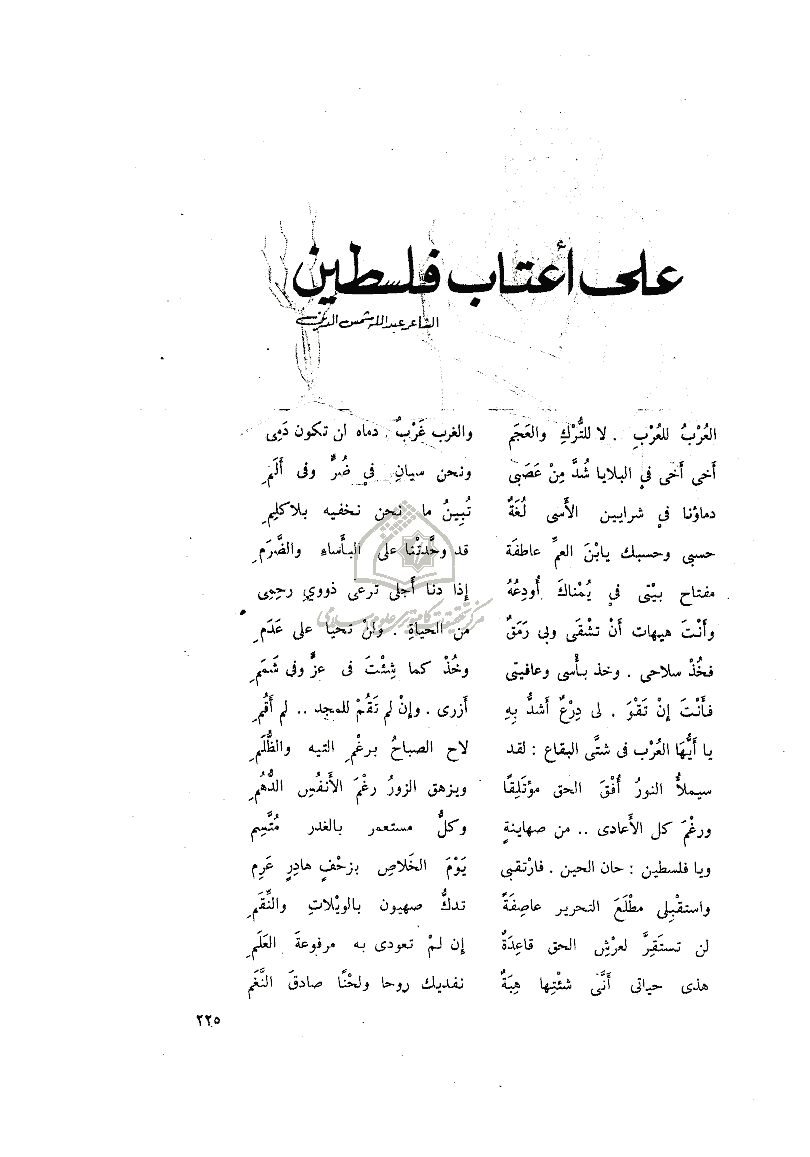 على أعتاب فلسطين
الشاعر عبدالله شمس الدين
العُرْبُ للعُرْبِ . لا للتُّرْكِ والعَجَمِ والغرب غَرْبٌ . دماه لن تكون دَمِى
أخى أخى في البلايا شُدَّ مِنْ عَصَبى ونحن سيانِ في ضُرٍّ وفى أَلَمِ
دماؤنا في شرايين الأسى لُغَةٌ تُبِينُ ما نحن نخفيه بلاكلِمِ
حسبى وحسبك يابْنَ العمِّ عاطفَة قد وحَّدتْنا على البأساءِ والضَّرَمِ
مفتاح بيْتى في يُمْناكَ أُودِعُهُ إذا دنا أجلى ترعى ذووي رحمِى
وأنْتَ هيهات أنْ تشْقَى وبى رَمَقٌ من الحياةِ . وأنْ تحيا على عَدَمِ
فخُذْ سلاحى . وخذ بأْسى وعافيتى وخُذْ كما شِئْتَ فى عزٍّ وفى شَمَمِ
فأنْتَ إنْ تقْوَ . لى دِرْعٌ أشدُّ بِهِ أزرى . وإنْ لم تَقُمْ للمجد .. لم أَقُمِ
يا أيُّها العُرْب فى شتَّى البقاع : لقد لاح الصباحُ برغْمِ التيه والظُّلَمِ
سيملأُ النورُ أُفْقَ الحق مؤتَلِقًا ويزهق الزورُ رغْمَ الأنفُسِ الدُّهُمِ
ورغْمَ كل الأعادى .. من صهاينةٍ وكلُّ مستعمر بالغدر مُتَّسِمِ
ويا فلسطين : حان الحين . فارْتقبى يَوْمَ الخَلاصِ بزحْفٍ هادِرٍ عَرِمِ
واستقْبِلى مطْلَعَ التحرير عاصِفَةً تدكُّ صهيون بالويْلاتِ والنِّقَمِ
لن تستَقِرَّ لعرْشِ الحق قاعِدَةٌ إن لمْ تعودى به مرفوعةَ العَلَمِ
هذى حياتى أنَّى شئْتِها هِبَةٌ نفديك روحا ولحْنًا صادقَ النَّغَمِ
٢٢٥